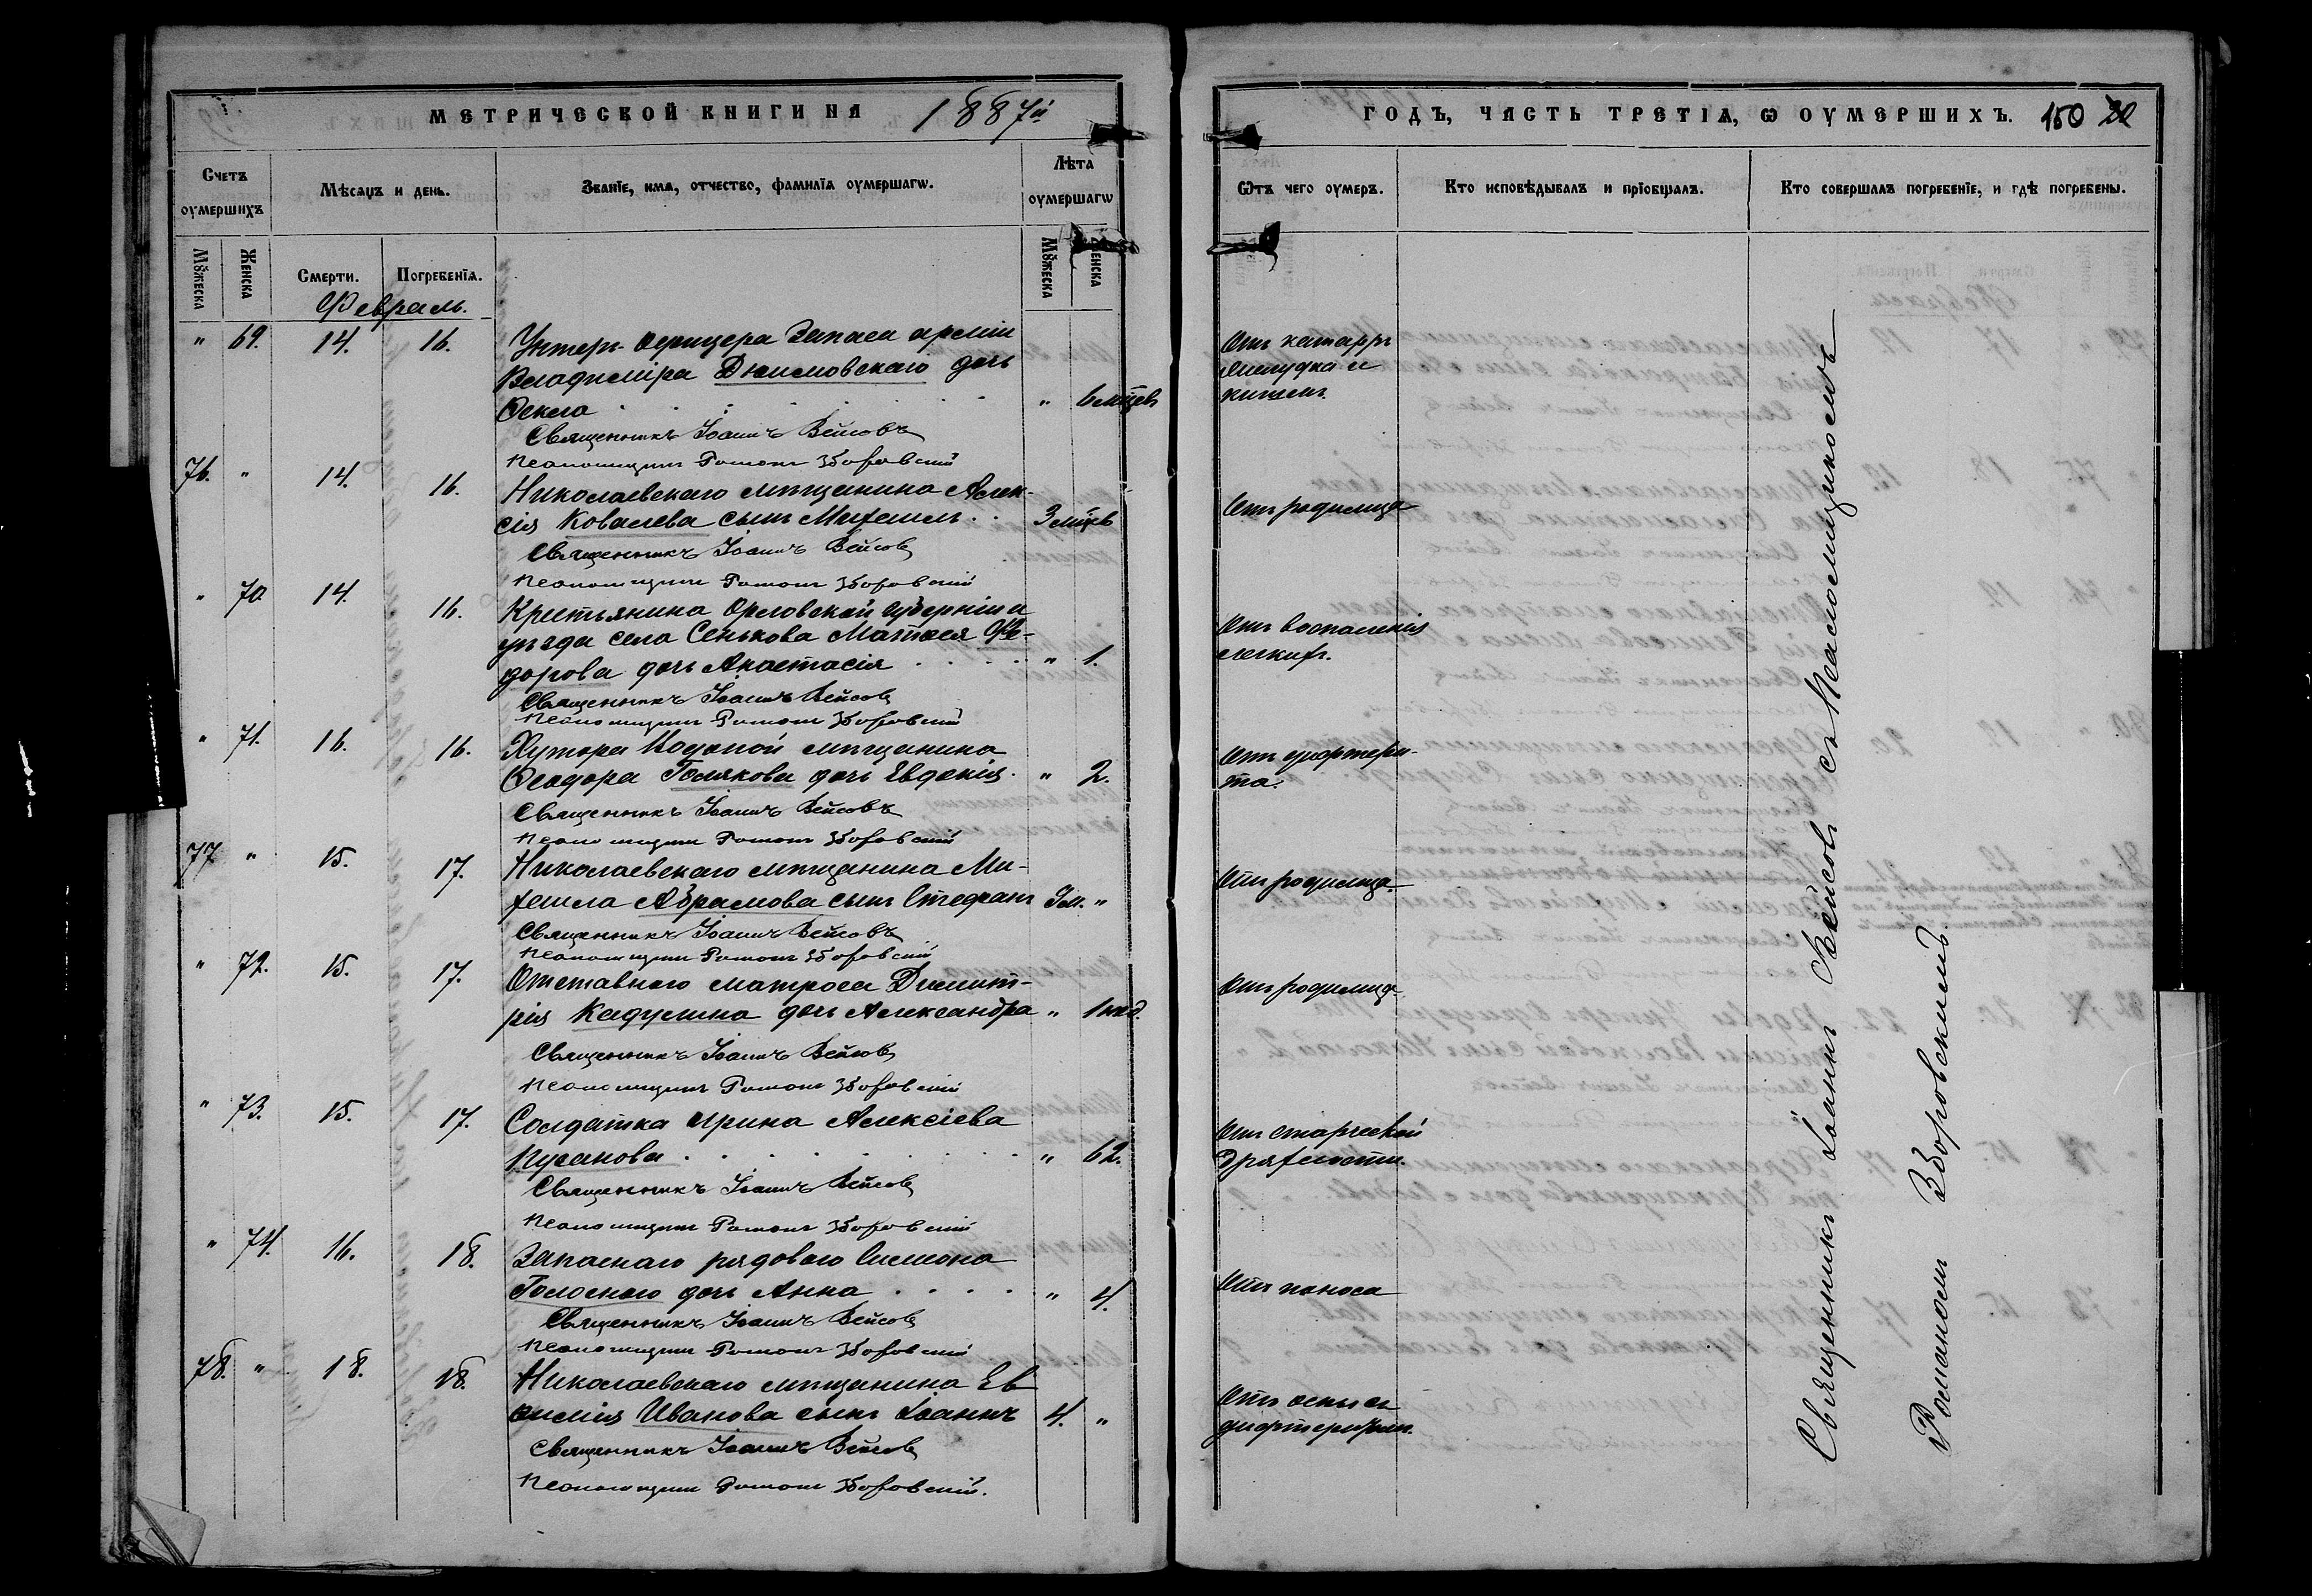 МЕТРИЧЕСКОЙ КНИГИ НА 1887й
Счетъ оумершихъ
Мѣсяцъ и день.
Званїе, имя, отчество, фамилїя оумершагѡ.
Лѣта оумершагѡ
Мꙋжеска
Женска
Смерти.
Погребенїя.
Мꙋжеска
Женска
Февраль.
" 69. 14. 16. Унтеръ-офицера запаса арміи
Владиміра дочь
Ѳекла " 6 мѣсцев
Священникъ Іоаннъ Вейсовъ
Псаломщикъ Романъ Зборовскій
76. " 14. 16. Николаевскаго мѣщанина Алек-
сія Ковалева сынъ Михаилъ 3 мѣсцев
Священникъ Іоаннъ Вейсовъ
Псаломщикъ Романъ Зборовскій
" 70 14. 16. Крестьянина Орловской губерніи и
уѣзда села Сенькова Матѳея Ѳе-
дорова дочь Анастасія " 1.
Священникъ Іоаннъ Вейсовъ
Псаломщикъ Романъ Зборовскій
" 71. 16. 16. Хутора Водопой мѣщанина
Ѳеодора Полякова дочь Евдокія. " 2.
Священникъ Іоаннъ Вейсовъ
Псаломщикъ Романъ Зборовскій
77 " 15. 17. Николаевскаго мѣщанина Ми-
хаила Абрамова сынъ Стефанъ "
Священникъ Іоаннъ Вейсовъ
Псаломщикъ Романъ Зборовскій
" 72. 15. 17. Отставнаго матроса Димит-
рія Кадулина дочь Александра " 1 нед.
Священникъ Іоаннъ Вейсовъ
Псаломщикъ Романъ Зборовскій
" 73. 15. 17. Солдатка Ирина Алексіева
Пусанова " 62.
Священникъ Іоаннъ Вейсовъ
Псаломщикъ Романъ Зборовскій
" 74. 16. 18. Запаснаго рядоваго Симеона
Голоснаго дочь Анна " 4.
Священникъ Іоаннъ Вейсовъ
Псаломщикъ Романъ Зборовскій
78. " 18. 18. Николаевскаго мѣщанина Ев-
ѳимія Иванова сынъ Іоаннъ 4. "
Священникъ Іоаннъ Вейсовъ
Псаломщикъ Романъ Зборовскій.
ГОДЪ, ЧАСТЬ ТРЕТІЯ, Ѡ ОУМЕРШИХЪ. 150 20
Ѿтъ чего оумеръ.
Кто исповѣдывалъ и прїобщалъ.
Кто совершалъ погребенїе, и гдѣ погребены.
Отъ катарръ
желудка и
кишекъ
Отъ родимца
Отъ воспаленія
легкихъ.
Отъ дифтери-
та.
Отъ родимца
Отъ родимца
Отъ старческой
дряхлости.
Отъ поноса
Отъ оспы съ
дифтеритомъ.
Священникъ Іоаннъ Вейсовъ съ Псаломщикомъ
Романомъ Зборовскимъ.